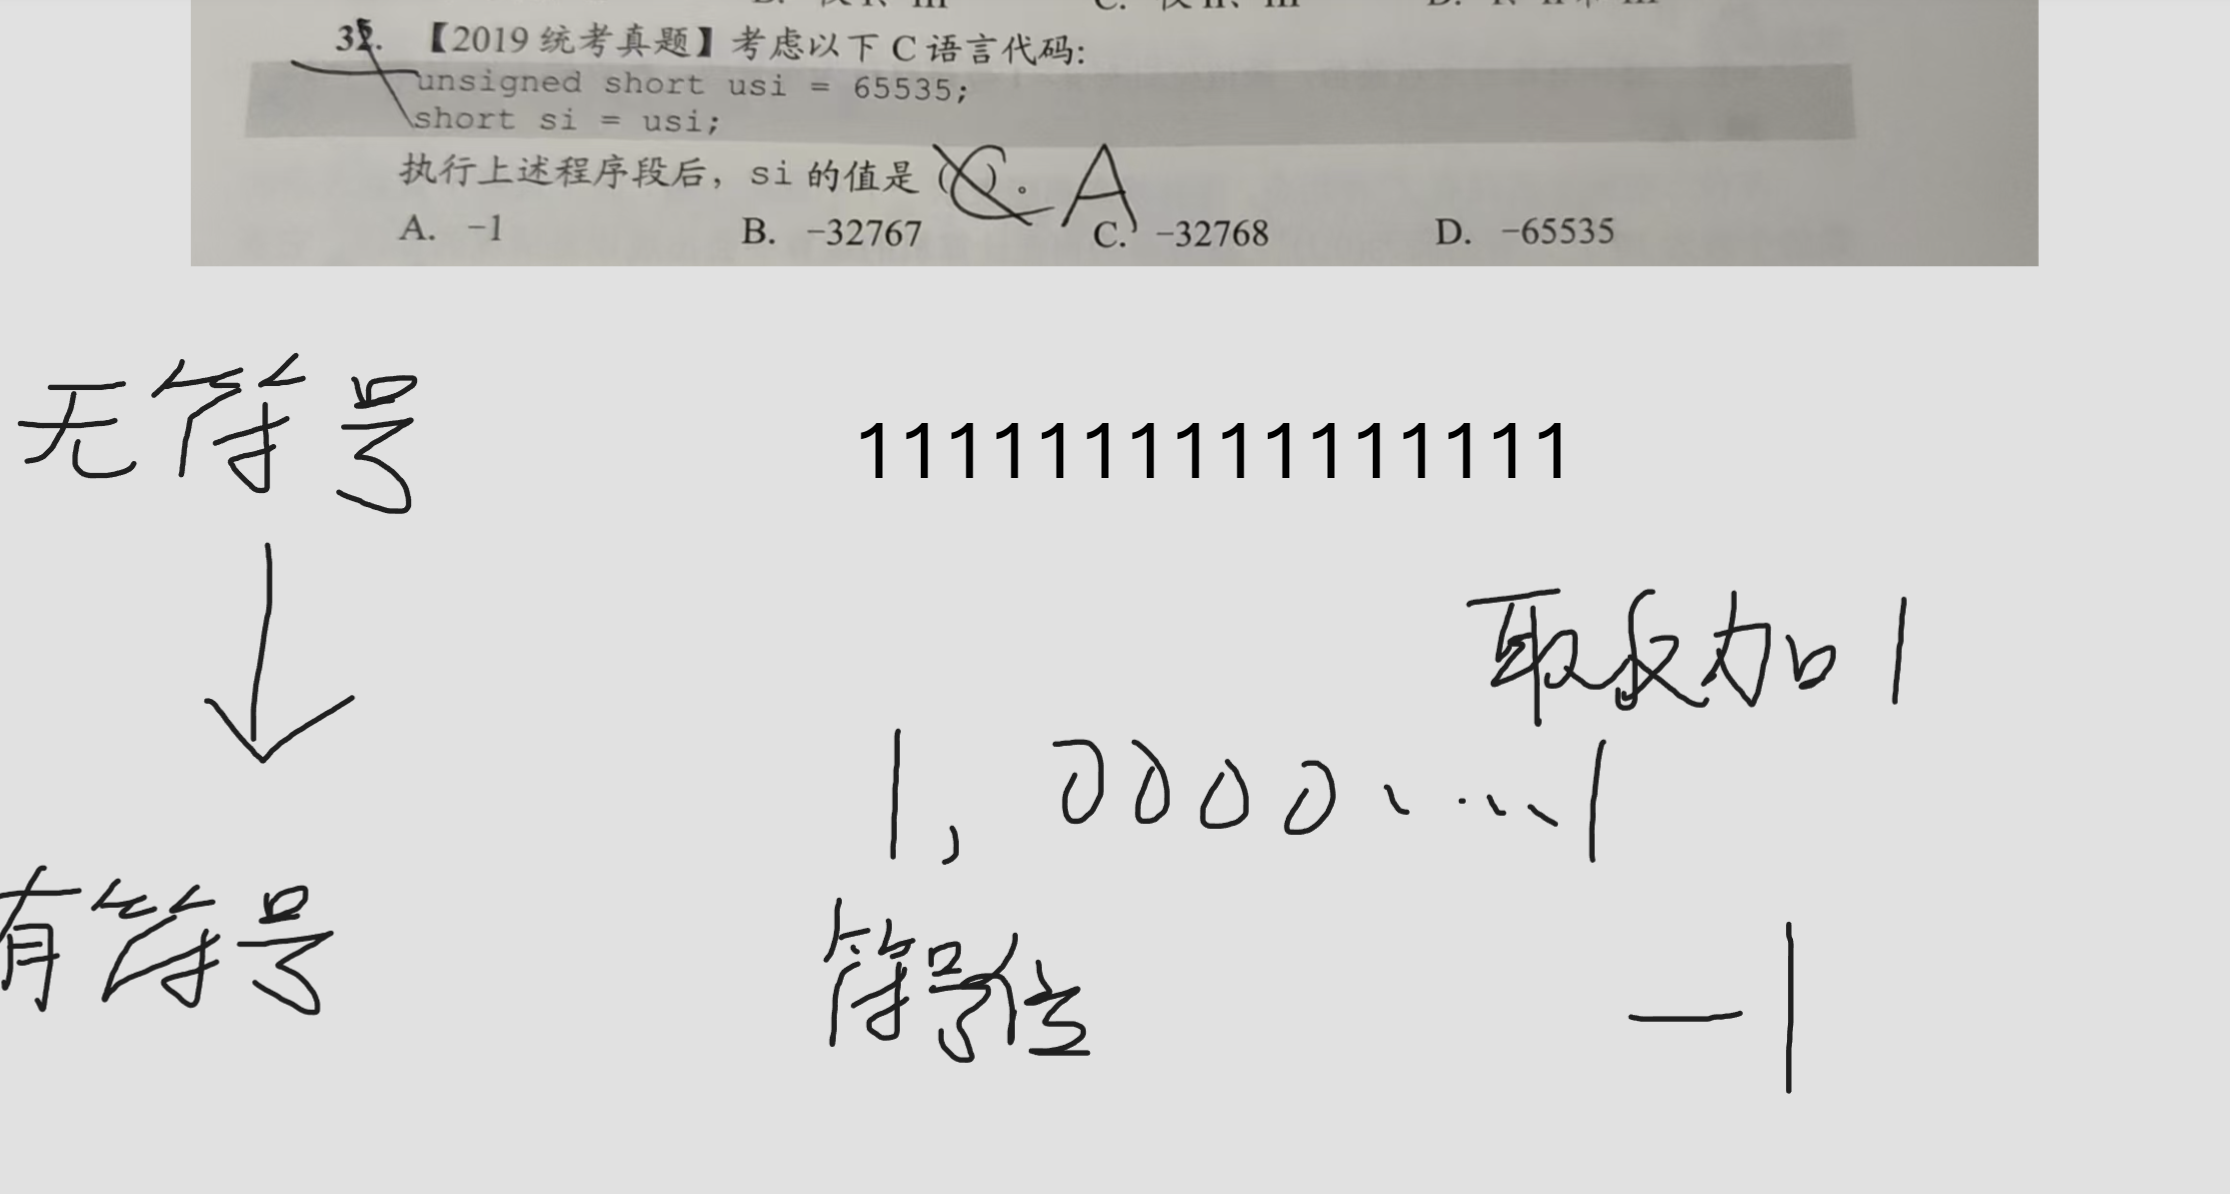 32. 【2019 统考真题】考虑以下 C 语言代码:
unsigned short usi = 65535;
short si = usi;
执行上述程序段后，si 的值是( C )。 A
A. -1 B. -32767 C. -32768 D. -65535
无符号
1111111111111111
取反加1
1, 0000....1
有符号
符号位
-1